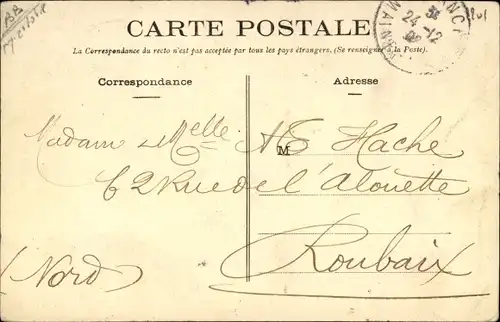 CARTE POSTALE
La Correspondance du recto n'est pas acceptée par tous les pays étrangers. (Se renseigner à la Poste).
Correspondance
Adresse
Madam et Melle AE Hache
M
62 Rue de l'Alouette
Roubaix
(Nord)
24-12